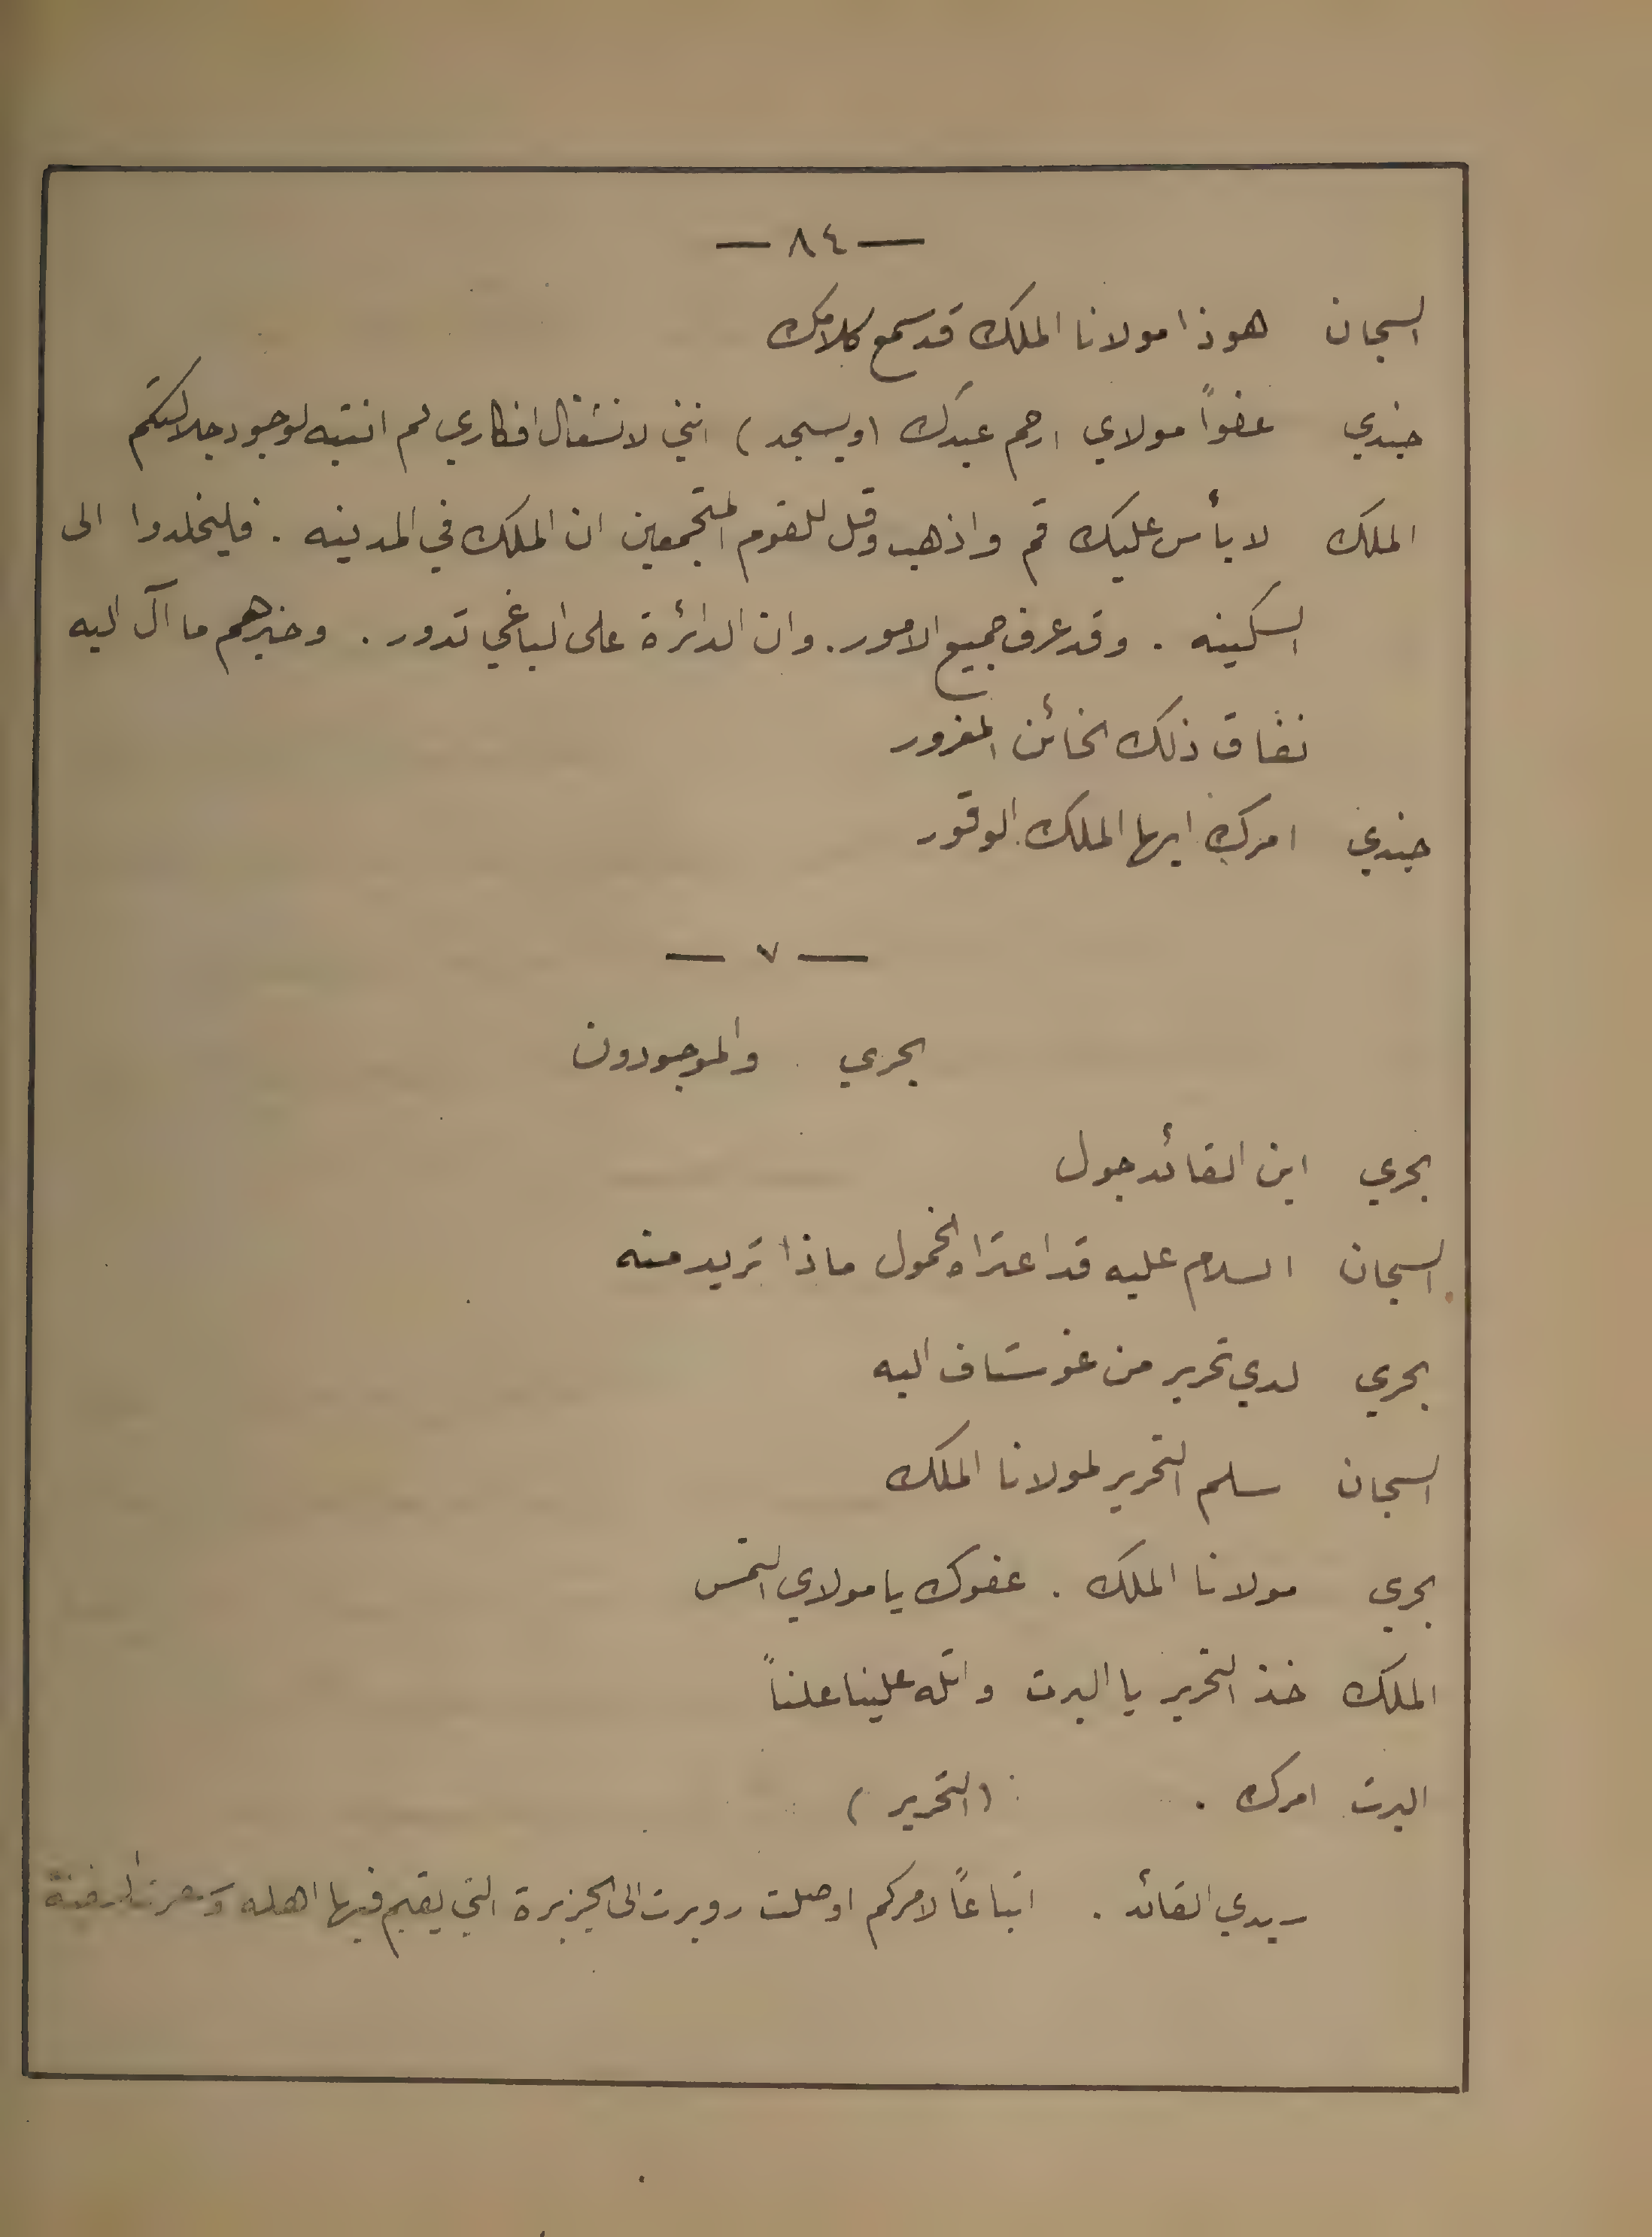 — ٨٤ —
السجان هوذا مولانا الملك قد سمع كلامك
جندي عفواً مولاي ارحم عبدك (ويسجد) انني لانشغال افكاري لم انتبه لوجود جلالتكم
الملك لا بأس عليك قم واذهب وقل للقوم المتجمعين ان الملك في المدينه . فليخلدوا الى
السكينه . وقد عرف جميع الامور . وان الدائرة على الباغي تدور . وخبرهم ما آل اليه
نفاق ذلك الخائن المغرور
جندي امرك ايها الملك الوقور
— ٧ —
بحري والموجودون
بحري اين القائد جول
السجان السلام عليه قد اعتراه الخمول ماذا تريد منه
بحري لدي تحرير من غوستاف اليه
السجان سلم التحرير لمولانا الملك
بحري مولانا الملك . عفوك يا مولاي التمس
الملك خذ التحرير يا البرت واتله علينا علناً
البرت امرك . (التحرير)
سيدي القائد . اتباعاً لامركم اوصلت روبرت الى الجزيرة التي يقيم فيها اهله